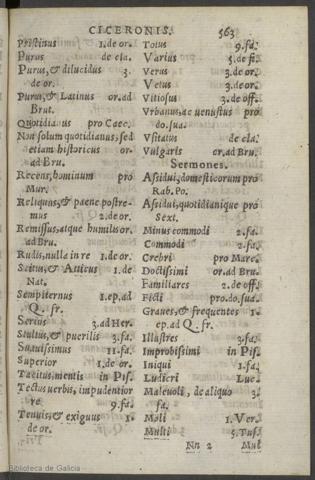 CICERONIS. 563
Pristinus 1.de or.
Purus de cla.
Purus, & dilucidus 3.
de or.
Purus, & Latinus or.ad
Brut.
Quotidianus pro Caec.
Non solum quotidianus, sed
etiam historicus or.
ad Bru.
Recens, hominum pro
Mur.
Reliquus, & paene postre-
mus 2.de or.
Remissus, atque humilis or.
ad Bru.
Rudis, nulla in re 1.de or.
Scitus, & Atticus 1.de
Nat.
Sempiternus 1.ep.ad
Q. fr.
Serius 3.ad Her.
Stultus, & puerilis 3.fa.
Suauissimus 11.fa.
Superior 1.de or.
Tacitus, mentis in Pis.
Tectus verbis, impudentior
re 9.fa.
Tenuis, & exiguus 1.
de or.
Totus 9.fa.
Varius 5.de fi.
Verus 3.de or.
Vetus 3.de or.
Vitiosus 3.de off.
Vrbanus, ac venustus pro
do.sua.
Vsitatus de cla.
Vulgaris or.ad Bru.
Sermones.
Assidui, domesticorum pro
Rab. Po.
Assidui, quotidianique pro
Sext.
Minus commodi 2.fa.
Commodi 2.fa.
Crebri pro Marc.
Doctissimi or.ad Bru.
Familiares 2.de off.
Ficti pro.do.sua.
Graues, & frequentes 1.
ep.ad Q. fr.
Illustres 3.fa.
Improbissimi in Pis.
Iniqui 1.fa.
Ludicri Luc.
Maleuoli, de aliquo 3.
fa.
Mali 1.Ver.
Multi 5.Tus.
Nn 2 Mul
Biblioteca de Galicia